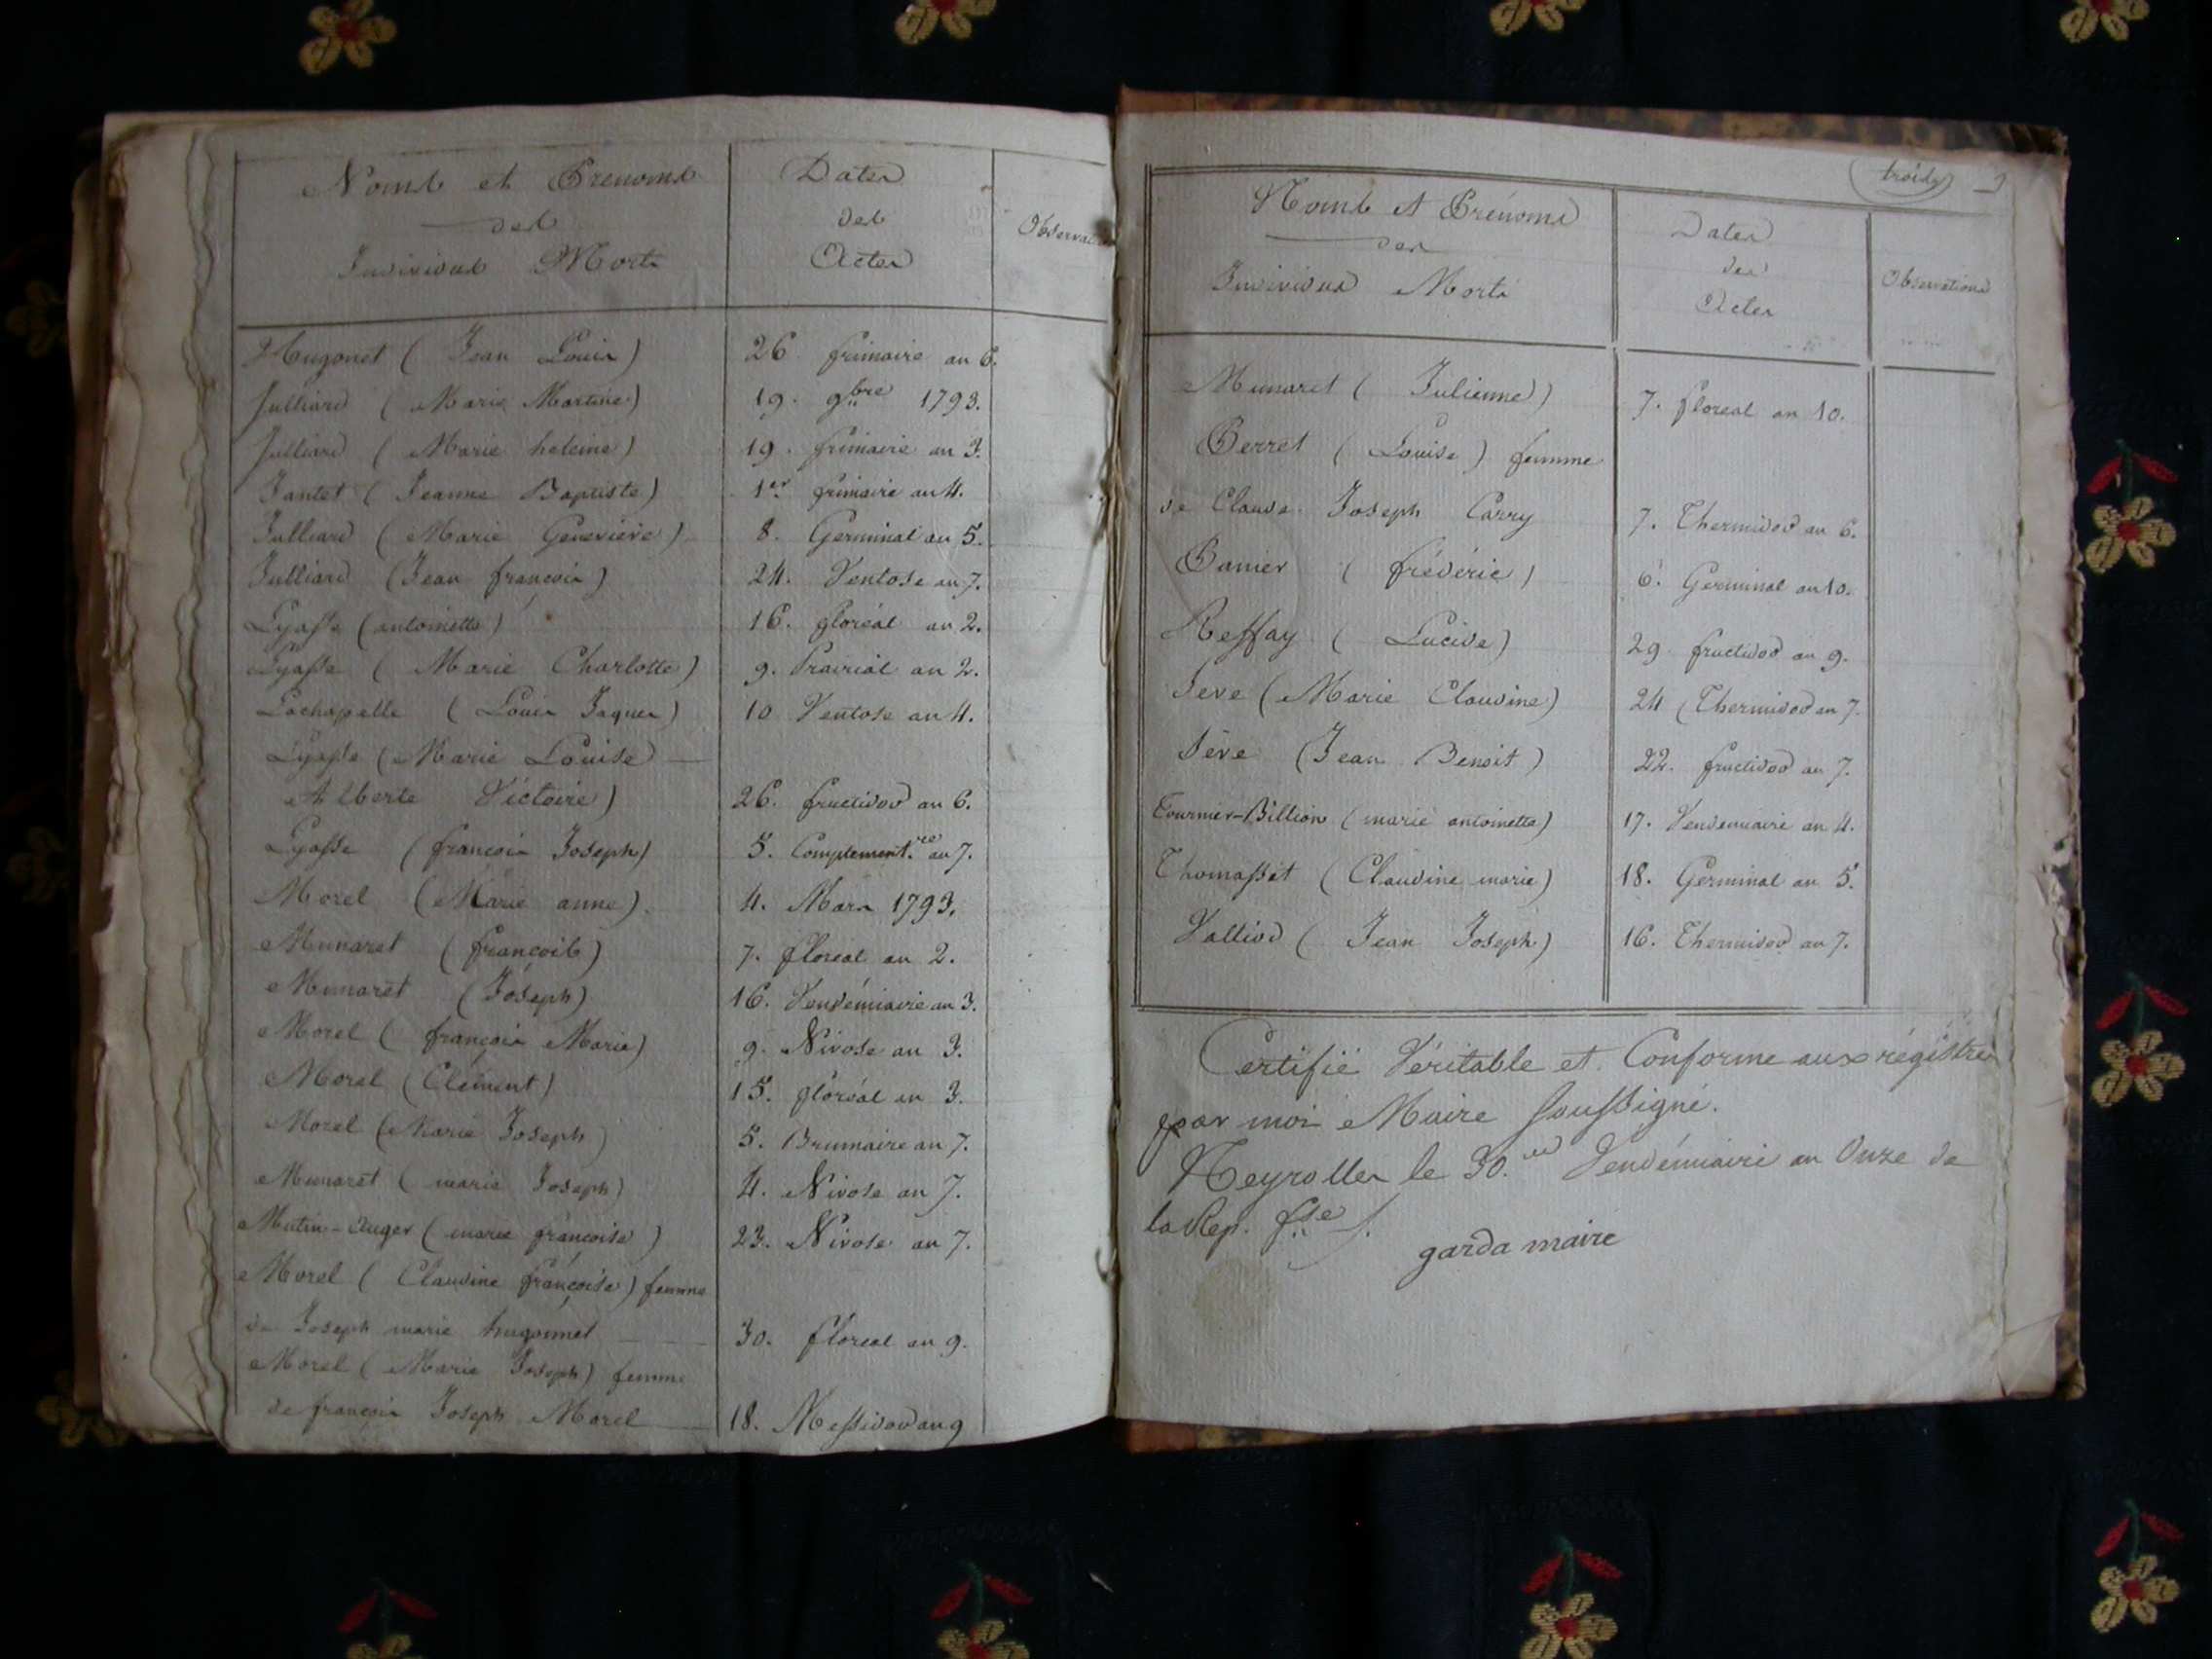 Noms et Prenoms
des
Individus Morts
Dates
des
Actes
Observations
Hugonet ( Jean Louis ) 26 frimaire an 6.
Julliard ( Marie Martine ) 19. 9bre 1793.
Julliard ( Marie heleine ) 19. frimaire an 3.
Jantet ( Jeanne Baptiste ) 1er frimaire an 4.
Julliard ( Marie Geneviève ) 8. Germinal an 5.
Julliard ( Jean françois ) 24. Ventose an 7.
Lyasse ( antoinette ) 16. floréal an 2.
Lyasse ( Marie Charlotte ) 9. Prairial an 2.
Lachapelle ( Louis Jaques ) 10 Ventose an 4.
Lyasse ( Marie Louise
Alberte Victoire ) 26. fructidor an 6.
Lyasse ( françois Joseph ) 5. Complement.re an 7.
Morel ( Marie anne ) 4. Mars 1793.
Munaret ( françois ) 7. floreal an 2.
Munaret ( Joseph ) 16. Vendémiaire an 3.
Morel ( françois Marie ) 9. Nivose an 3.
Morel ( Clément ) 15. floréal an 3.
Morel ( Marie Joseph ) 5. Brumaire an 7.
Munaret ( marie Joseph ) 4. Nivose an 7.
Mutin-Auger ( marie françoise ) 23. Nivose an 7.
Morel ( Claudine françoise ) femme
de Joseph marie hugonnet 30. floreal an 9.
Morel ( Marie Joseph ) femme
de françois Joseph Morel 18. Messidor an 9
trois 3
Noms et Prénoms
des
Individus Morts
Dates
des
Actes
Observations
Munaret ( Julienne ) 7. floreal an 10.
Perret ( Louise ) femme
de Claude Joseph Carry 7. Thermidor an 6.
Panier ( frédéric ) 6. Germinal an 10.
Reffay ( Lucide ) 29 fructidor an 9.
Seve ( Marie Claudine ) 24 Thermidor an 7.
Sève ( Jean Benoit ) 22. fructidor an 7.
Tournier-Billion ( marie antoinette ) 17. Vendemiaire an 4.
Thomasset ( Claudine marie ) 18. Germinal an 5.
Valliod ( Jean Joseph ) 16. Thermidor an 7.
Certifié Véritable et Conforme aux régistres
par moi Maire soussigné.
Neyrolles le 30. Vendémiaire an Onze de
la Rep. fse
garda maire